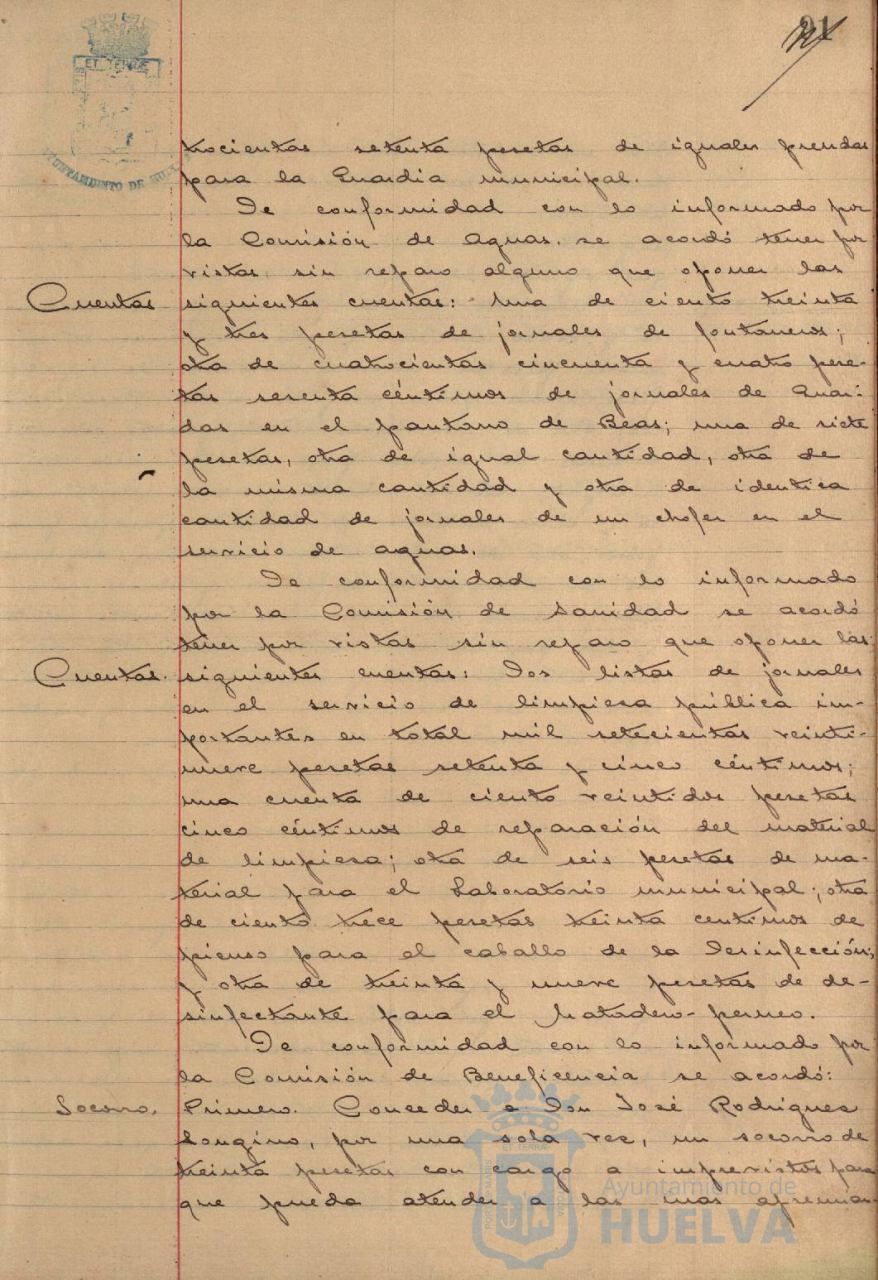 trocientas setenta pesetas de iguales prendas
para la Guardia municipal.
De conformidad con lo informado por
la Comisión de Aguas. se acordó tener por
vistas sin reparo alguno que oponer las
Cuentas siguientes cuentas: Una de ciento treinta
y tres pesetas de jornales de fontaneros;
otra de cuatrocientas cincuenta y cuatro pese-
tas sesenta céntimos de jornales de Guar-
das en el pantano de Beas; una de siete
pesetas, otra de igual cantidad, otra de
la misma cantidad y otra de identica
cantidad de jornales de un chofer en el
servicio de aguas.
De conformidad con lo informado
por la Comisión de Sanidad se acordó
tener por vistas sin reparo que oponer las
Cuentas. siguientes cuentas: Dos listas de jornales
en el servicio de limpieza pública im-
portantes en total mil setecientas veinti-
nueve pesetas setenta y cinco céntimos;
una cuenta de ciento veintidos pesetas
cinco céntimos de reparación del material
de limpieza; otra de seis pesetas de ma-
terial para el Laboratorio municipal; otra
de ciento trece pesetas treinta centimos de
pienso para el caballo de la Desinfección;
y otra de treinta y nueve pesetas de de-
sinfectante para el Matadero-perneo.
De conformidad con lo informado por
la Comisión de Beneficencia se acordó:
Socorro. Primero. Conceder a Don José Rodrigues
Longino, por una sola vez, un socorro de
treinta pesetas con cargo a imprevistos para
que pueda atender a las mas apremian-
ET TERRÆ
AYUNTAMIENTO DE HUELVA
Ayuntamiento de
HUELVA